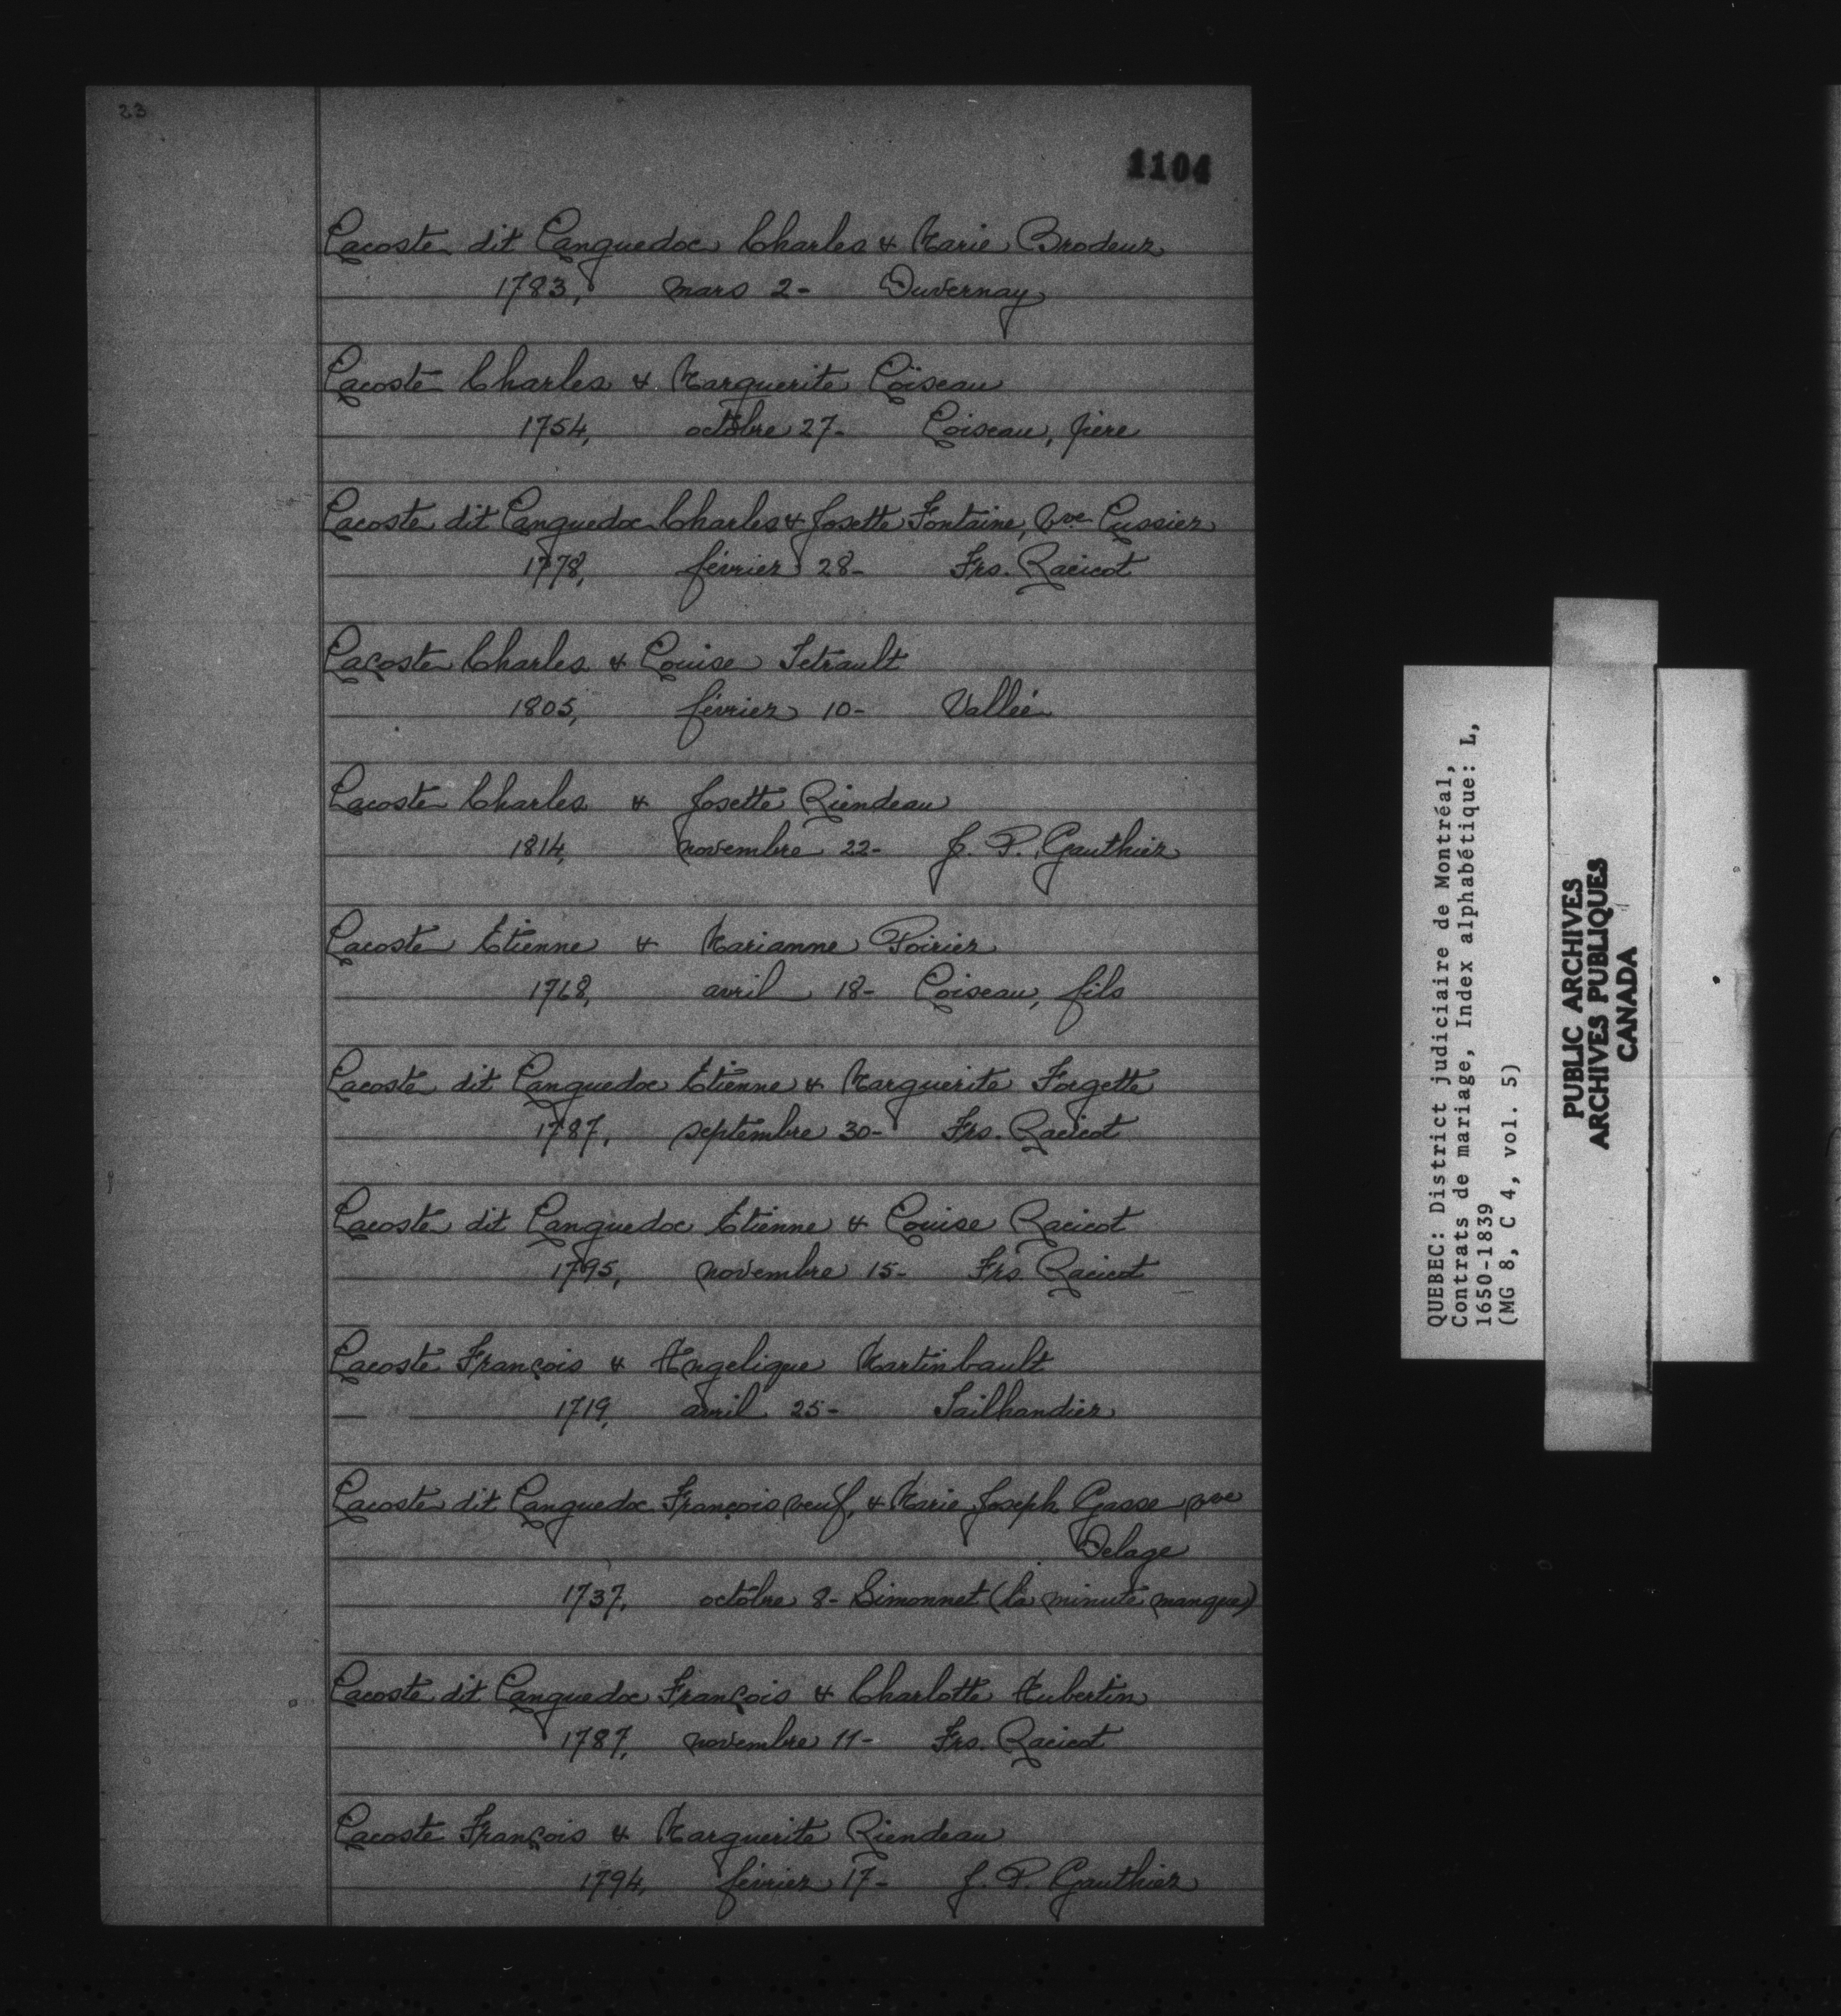 23
1104
Lacoste dit Languedoc Charles & Marie Brodeur
1783, mars 2- Duvernay
Lacoste Charles & Marguerite Loiseau
1754, octobre 27- Loiseau, père
Lacoste dit Languedoc Charles & Josette Fontaine, Vve Lussier
1778, février 28- Frs. Racicot
Lacoste Charles & Louise Tetrault
1805, février 10- Vallée
Lacoste Charles & Josette Riendeau
1814, novembre 22- J. P. Gauthier
Lacoste Etienne & Marianne Poirier
1768, avril 18- Loiseau, fils
Lacoste dit Languedoc Etienne & Marguerite Forgette
1787, septembre 30- Frs. Racicot
Lacoste dit Languedoc Etienne & Louise Racicot
1795, novembre 15- Frs. Racicot
Lacoste François & Angelique Martinbault
1719, avril 25- Tailhandier
Lacoste dit Languedoc François, veuf, & Marie Joseph Gasse vve
Delage
1737, octobre 8- Simonnet (la minute manque)
Lacoste dit Languedoc François & Charlotte Aubertin
1787, novembre 11- Frs. Racicot
Lacoste François & Marguerite Riendeau
1794, février 17- J. P. Gauthier
QUEBEC: District judiciaire de Montréal,
Contrats de mariage, Index alphabétique: L,
1650-1839
(MG 8, C 4, vol. 5)
PUBLIC ARCHIVES
ARCHIVES PUBLIQUES
CANADA